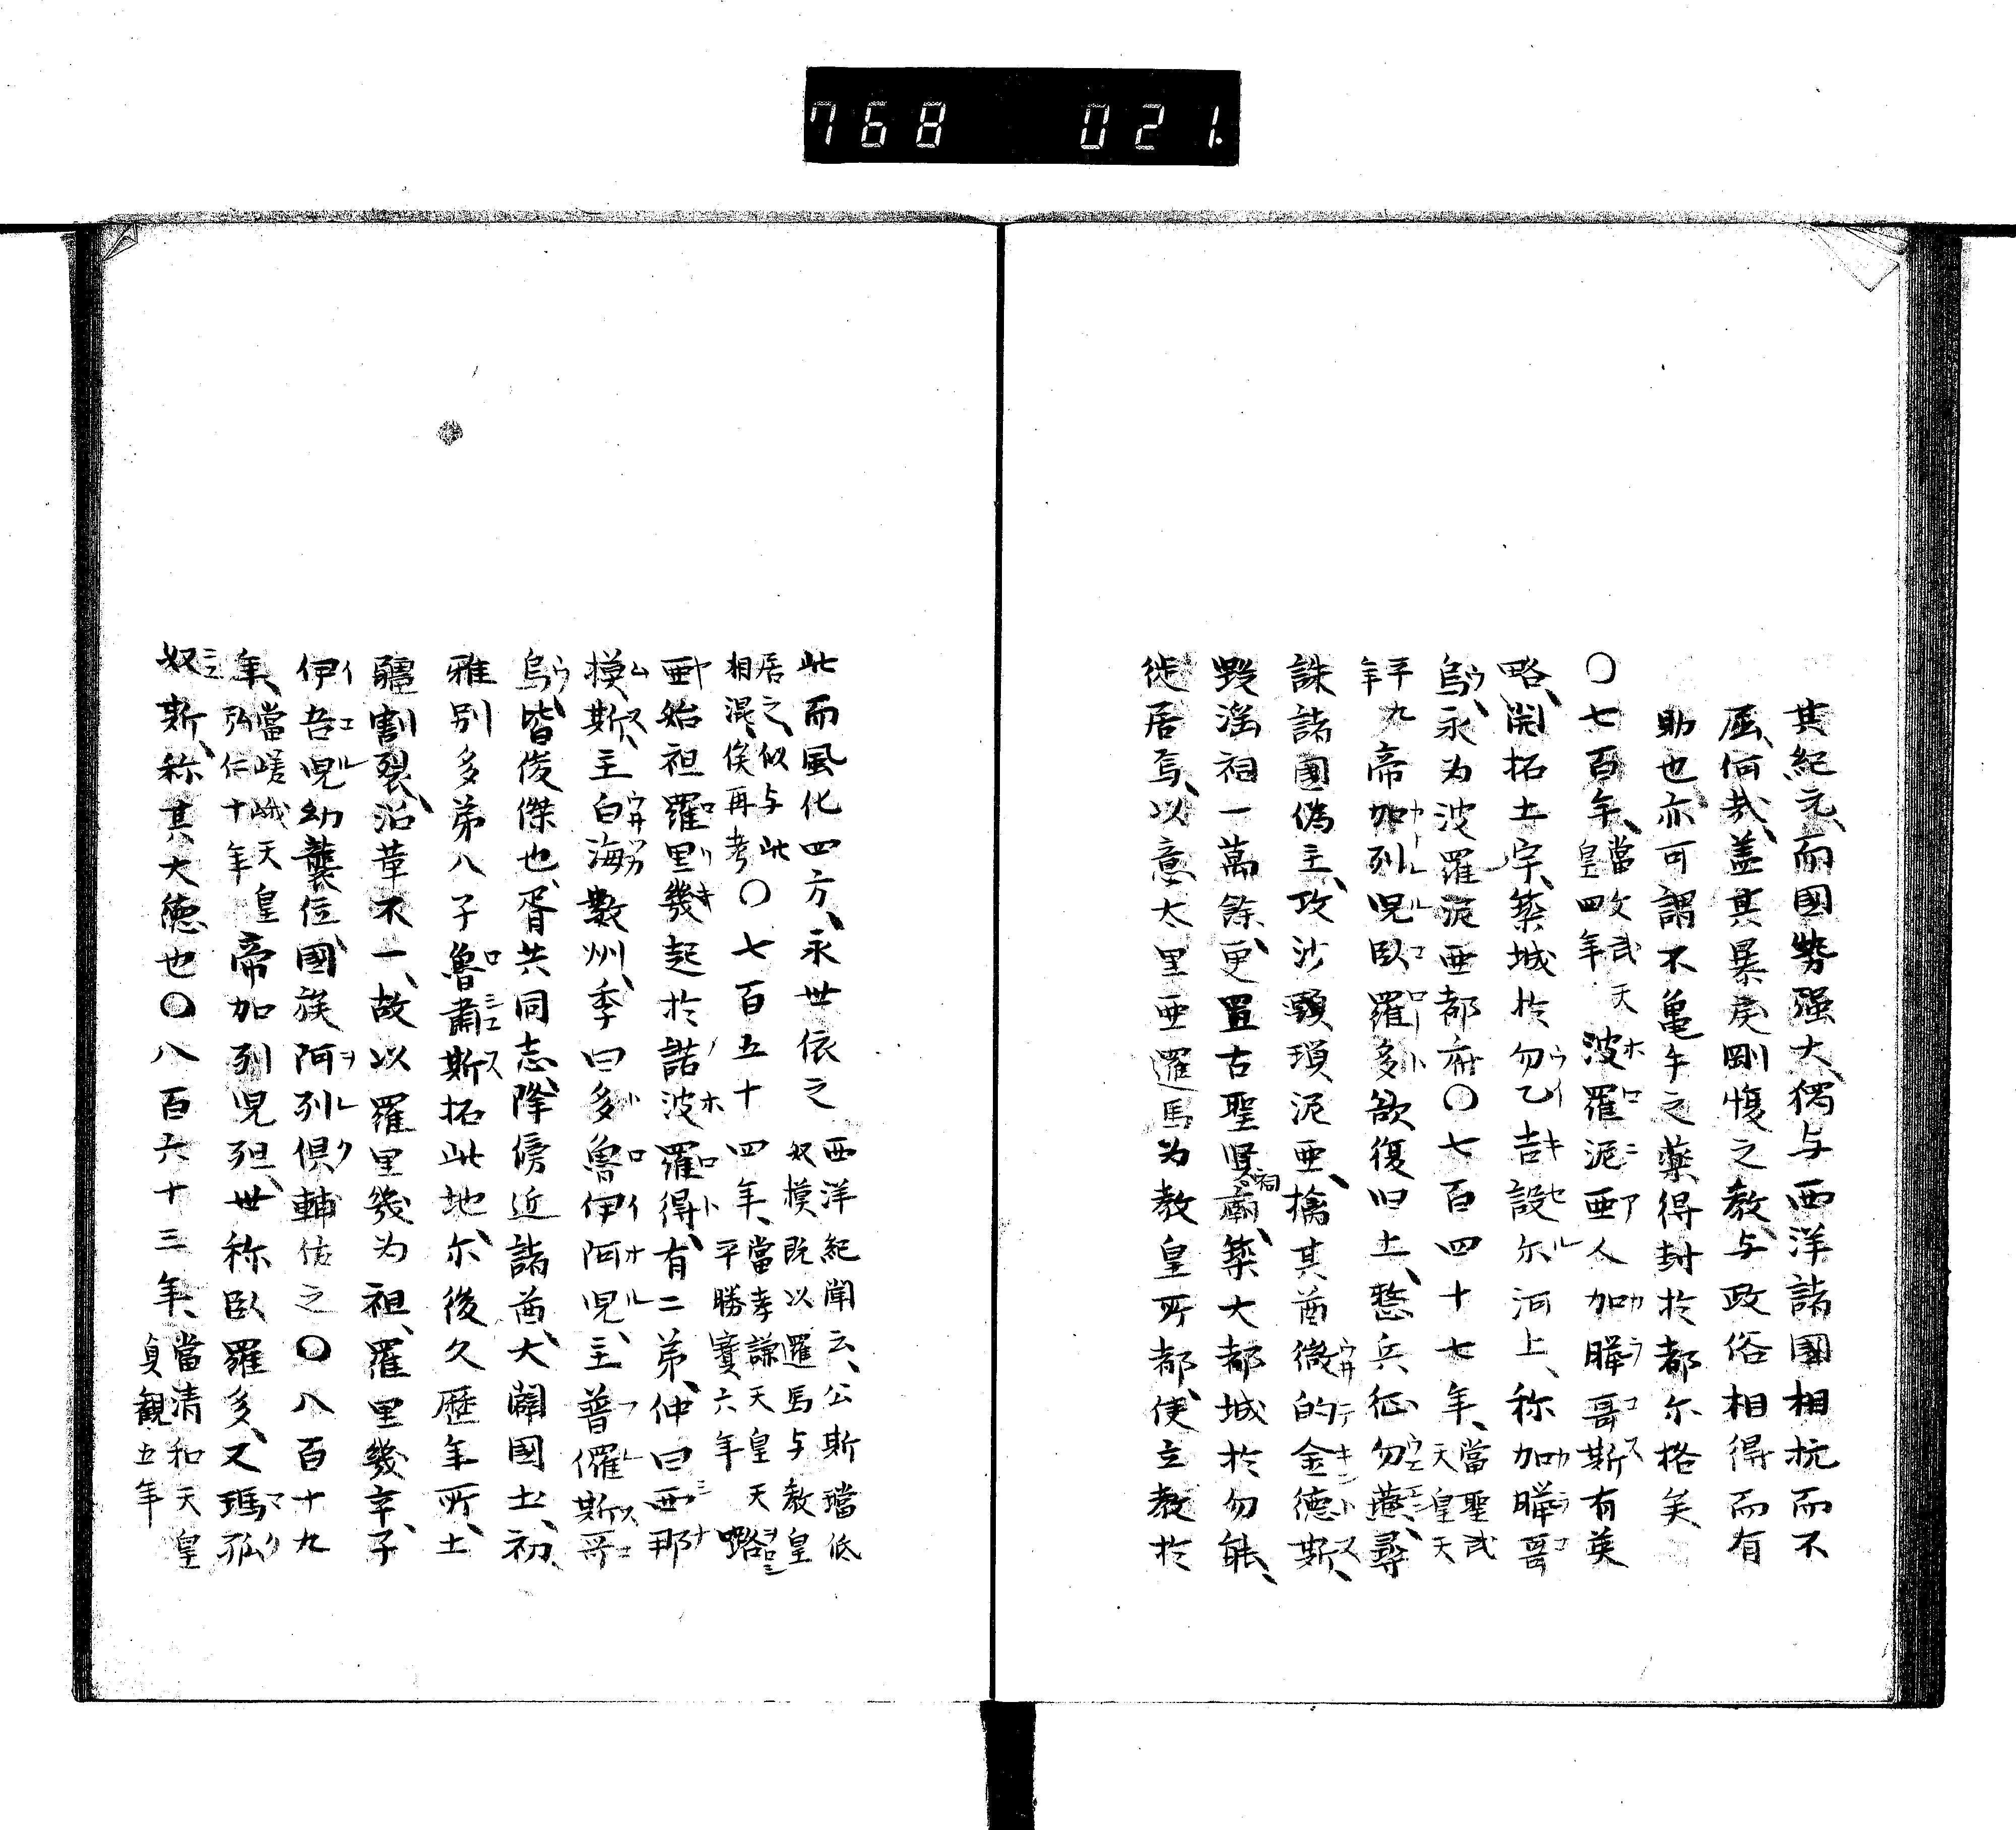 768 021.
其紀元、而國勢强大、獨与西洋諸國相抗而不
屈、何哉、蓋其暴戻剛愎之教、与政俗相得而有
助也、亦可謂不亀手之藥得封於都尓格矣、
〇七百年、當文武天皇四年 波羅泥亜人加瞱哥斯有英
略、開拓土宇、築城於勿乙吉設尓河上、称加瞱哥
烏、永为波羅泥亜都府〇七百四十七年、當聖武天皇天
平九年 帝加列児臥羅多欲復旧土、憖兵征勿燕、尋
誅諸國偽主、攻沙頸瑣泥亜、擒其酋微的金德斯、
毀滛祠一萬餘、更置古聖贤祠廟、築大都城於勿能、
徙居焉、以意太里亜邏馬为教皇所都、使立教於
此而風化四方、永世依之 西洋紀聞云、公斯璫低奴模既以邏馬与教皇
居之、似与此相混、俟再考〇七百五十四年、當孝謙天皇天平勝寳六年 㗉
亜始祖羅里幾起於諾波羅得、有二弟、仲曰西那
模斯、主白海數州、季曰多魯伊阿児、主普儸斯哥
烏、皆俊傑也、胥共同志、降傍近諸酋、大闢國土、初、
雅别多第八子魯肅斯拓此地、尓後久歴年所、土
疆割裂、沿革不一、故以羅里幾为祖、羅里幾卒、子
伊吾児幼襲位、國族阿列倶輔佐之〇八百十九
年、當嵯峨天皇弘仁十年 帝加列児殂、世称臥羅多、又瑪孤
奴斯、称其大德也〇八百六十三年、當清和天皇貞觀五年